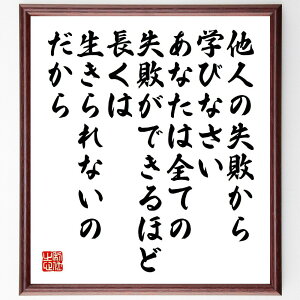 他人の失敗から
学びなさい
あなたは全ての
失敗ができるほど
長くは
生きられないの
だから